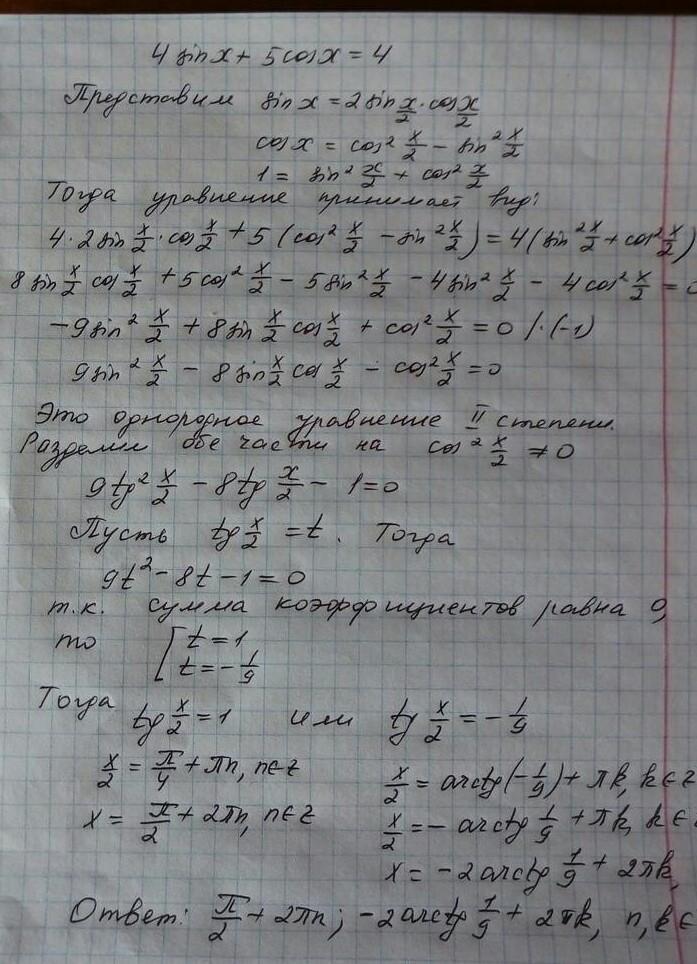 4 sin x + 5 cos x = 4
Представим sin x = 2 sin x/2 · cos x/2
cos x = cos² x/2 − sin² x/2
1 = sin² x/2 + cos² x/2
Тогда уравнение принимает вид:
4·2 sin x/2 · cos x/2 + 5 (cos² x/2 − sin² x/2) = 4 (sin² x/2 + cos² x/2)
8 sin x/2 cos x/2 + 5 cos² x/2 − 5 sin² x/2 − 4 sin² x/2 − 4 cos² x/2 = 0
−9 sin² x/2 + 8 sin x/2 cos x/2 + cos² x/2 = 0 /·(−1)
9 sin² x/2 − 8 sin x/2 cos x/2 − cos² x/2 = 0
Это однородное уравнение II степени.
Разделим обе части на cos² x/2 ≠ 0
9 tg² x/2 − 8 tg x/2 − 1 = 0
Пусть tg x/2 = t. Тогда
9t² − 8t − 1 = 0
т.к. сумма коэффициентов равна 0,
то [ t = 1
t = −1/9
Тогда
tg x/2 = 1 или tg x/2 = −1/9
x/2 = π/4 + πn, n∈z
x/2 = arctg(−1/9) + πk, k∈z
x = π/2 + 2πn, n∈z
x/2 = −arctg 1/9 + πk, k∈
x = −2 arctg 1/9 + 2πk,
Ответ: π/2 + 2πn; −2 arctg 1/9 + 2πk, n, k∈